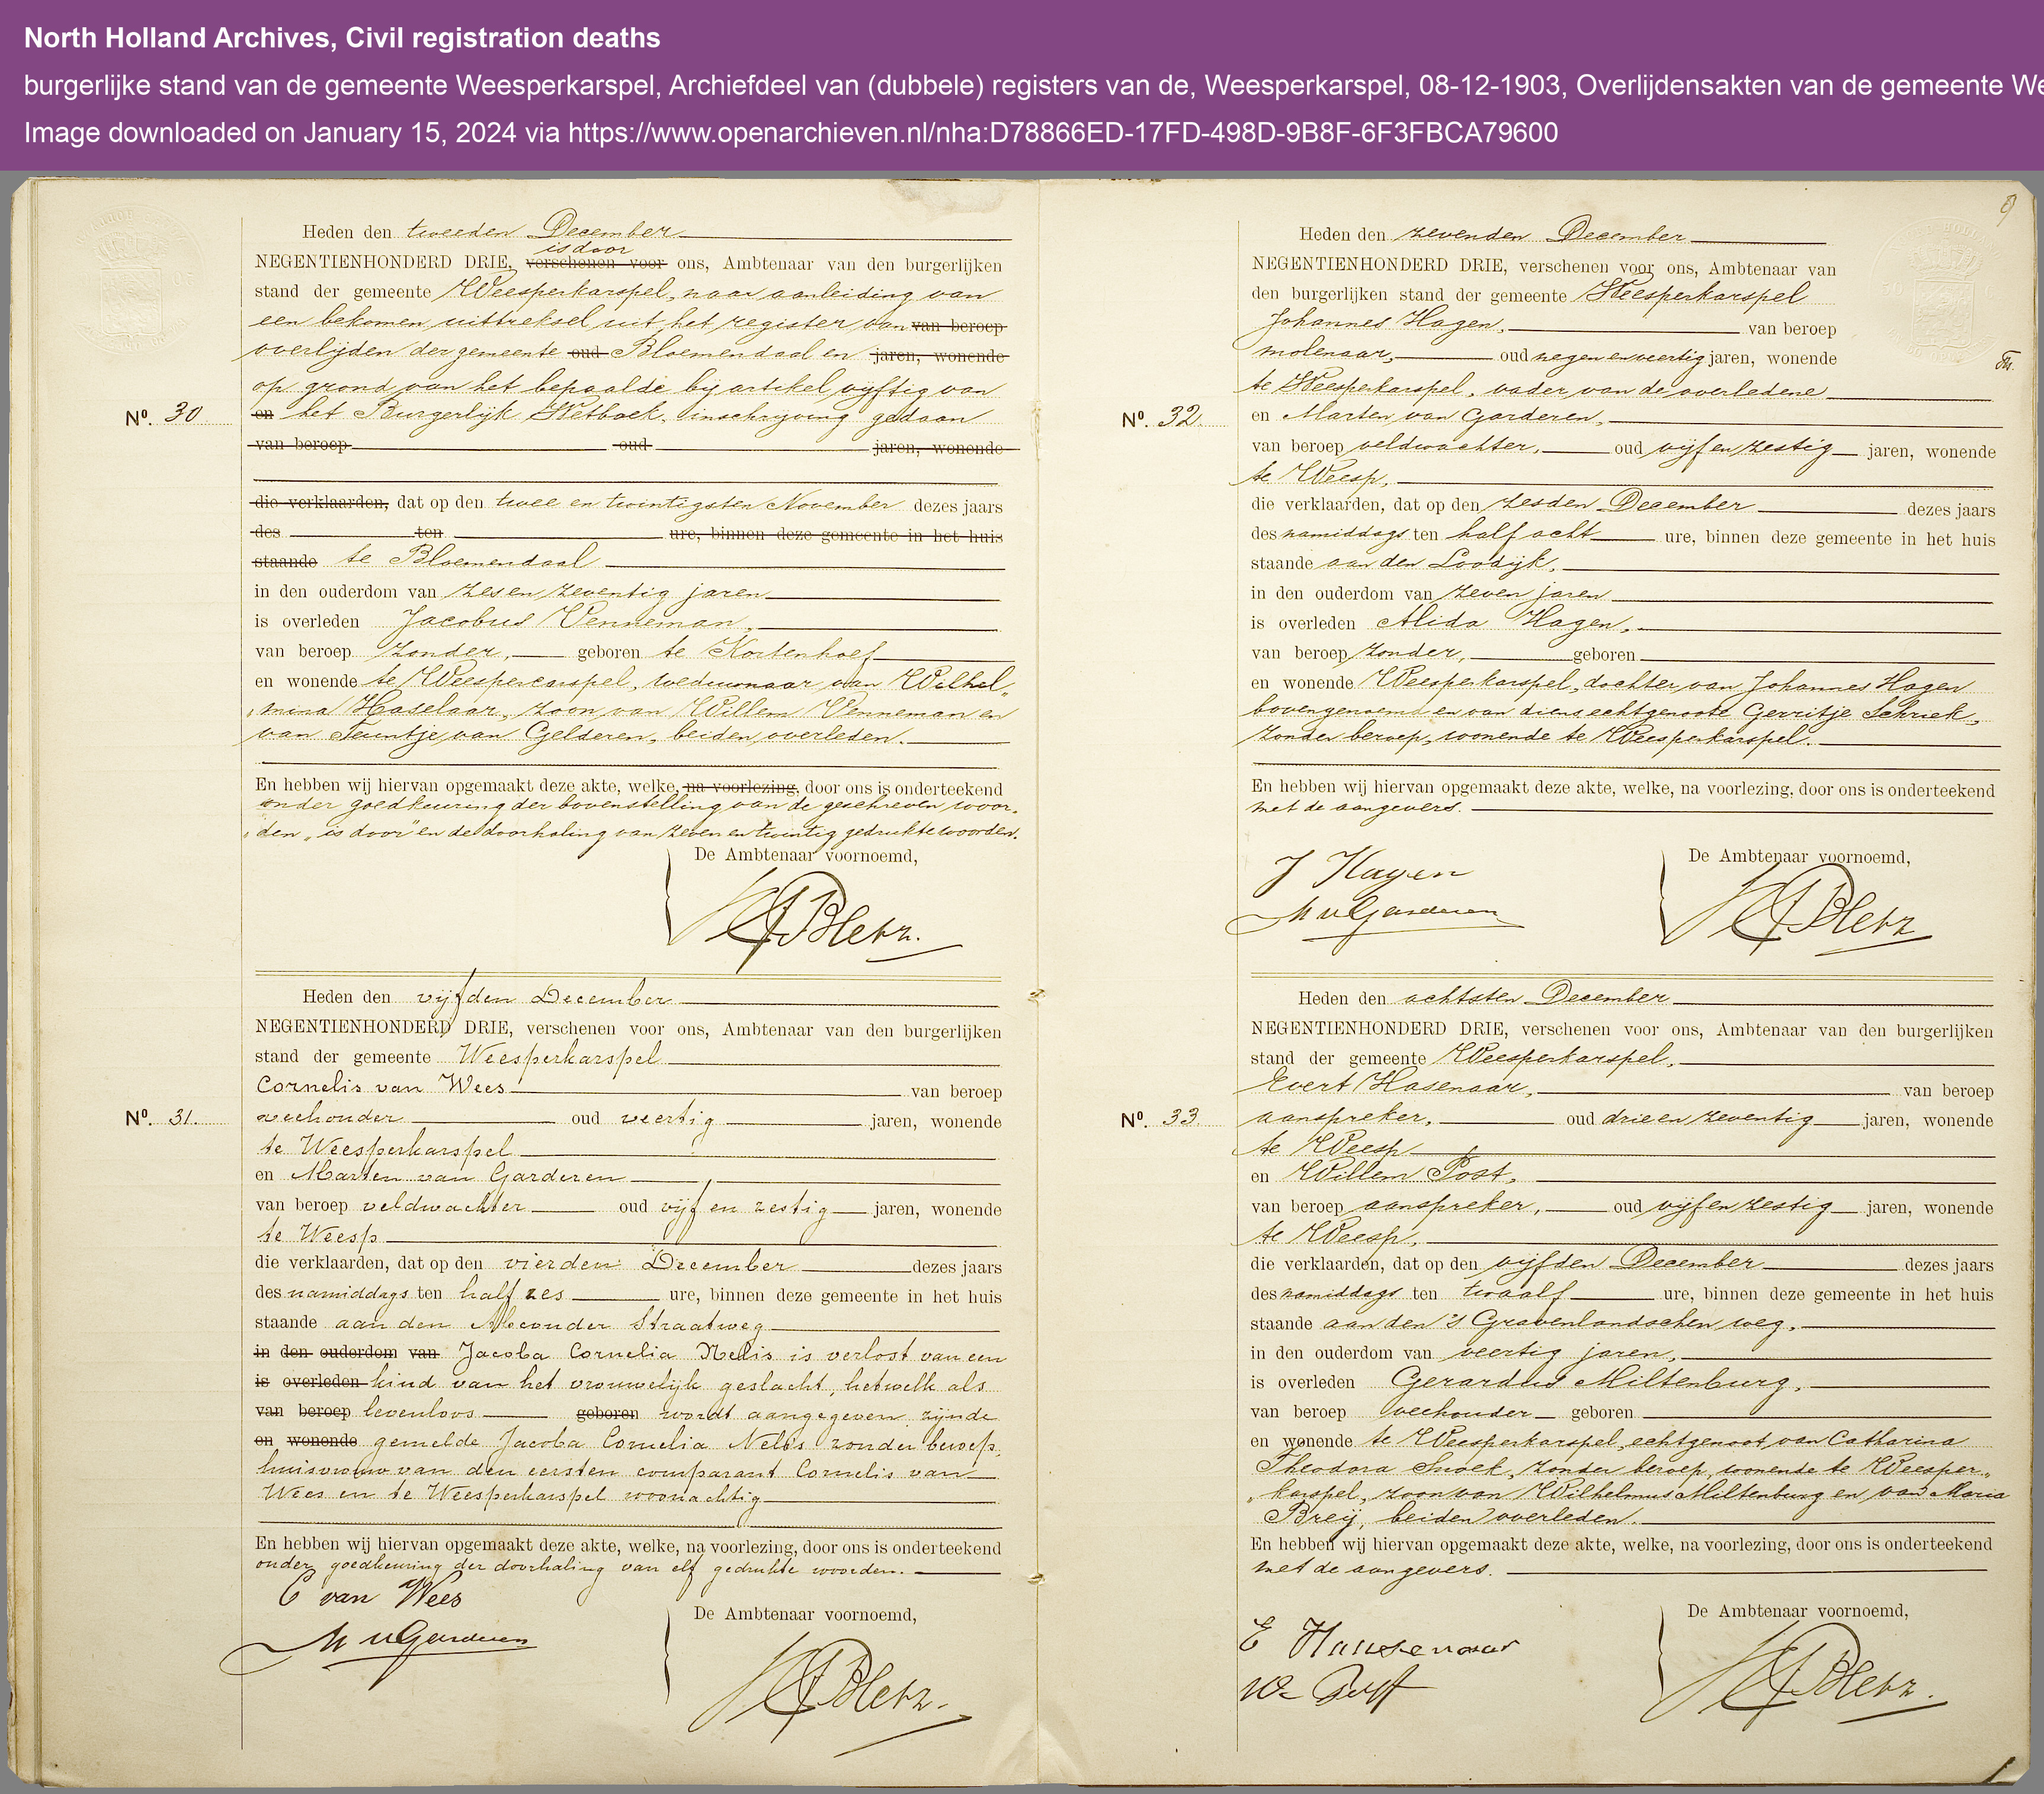 North Holland Archives, Civil registration deaths
burgerlijke stand van de gemeente Weesperkarspel, Archiefdeel van (dubbele) registers van de, Weesperkarspel, 08-12-1903, Overlijdensakten van de gemeente We
Image downloaded on January 15, 2024 via https://www.openarchieven.nl/nha:D78866ED-17FD-498D-9B8F-6F3FBCA79600
Heden den tweeden December
is door
NEGENTIENHONDERD DRIE, verschenen voor ons, Ambtenaar van den burgerlijken
stand der gemeente Weesperkarspel, naar aanleiding van
een bekomen uittreksel uit het register van van beroep
overlijden der gemeente oud Bloemendaal en jaren, wonende
op grond van het bepaalde bij artikel vijftig van
Nº. 30 en het Burgerlijk Wetboek, inschrijving gedaan
van beroep oud jaren, wonende
die verklaarden, dat op den twee en twintigsten November dezes jaars
des ten ure, binnen deze gemeente in het huis
staande te Bloemendaal
in den ouderdom van zes en zeventig jaren
is overleden Jacobus Venneman,
van beroep zonder, geboren te Kortenhoef
en wonende te Weesperkarspel, weduwnaar van Wilhel„
„mina Haselaar, zoon van Willem Venneman en
van Teuntje van Gelderen, beiden overleden.
En hebben wij hiervan opgemaakt deze akte, welke, na voorlezing, door ons is onderteekend
onder goedkeuring der bovenstelling van de geschreven woor„
„den „is door" en de doorhaling van zeven en twintig gedrukte woorden.
De Ambtenaar voornoemd,
Heden den vijfden December
NEGENTIENHONDERD DRIE, verschenen voor ons, Ambtenaar van den burgerlijken
stand der gemeente Weesperkarspel
Cornelis van Wees van beroep
Nº. 31. veehouder oud veertig jaren, wonende
te Weesperkarspel
en Marten van Garderen
van beroep veldwachter oud vijf en zestig jaren, wonende
te Weesp
die verklaarden, dat op den vierden December dezes jaars
des namiddags ten half zes ure, binnen deze gemeente in het huis
staande aan den Straatweg
in den ouderdom van Jacoba Cornelia Nelis is verlost van een
is overleden kind van het vrouwelijk geslacht, hetwelk als
van beroep levenloos geboren wordt aangegeven, zijnde
en wonende gemelde Jacoba Cornelia Nelis zonder beroep,
huisvrouw van den eersten comparant Cornelis van
Wees en te Weesperkarspel woonachtig
En hebben wij hiervan opgemaakt deze akte, welke, na voorlezing, door ons is onderteekend
onder goedkeuring der doorhaling van elf gedrukte woorden.
C van Wees
M v Garderen
De Ambtenaar voornoemd,
9
Heden den zevenden December
NEGENTIENHONDERD DRIE, verschenen voor ons, Ambtenaar van
den burgerlijken stand der gemeente Weesperkarspel
Johannes Hagen, van beroep
molenaar, oud negen en veertig jaren, wonende
te Weesperkarspel, vader van de overledene
Nº. 32. en Marten van Garderen,
van beroep veldwachter, oud vijf en zestig jaren, wonende
te Weesp,
die verklaarden, dat op den zesden December dezes jaars
des namiddags ten half acht ure, binnen deze gemeente in het huis
staande aan den Loodijk,
in den ouderdom van zeven jaren
is overleden Alida Hagen,
van beroep zonder, geboren
en wonende Weesperkarspel, dochter van Johannes Hagen
bovengenoemd en van diens echtgenoote Gerritje Schriek,
zonder beroep, wonende te Weesperkarspel.
En hebben wij hiervan opgemaakt deze akte, welke, na voorlezing, door ons is onderteekend
met de aangevers.
J Hagen
M v Garderen
De Ambtenaar voornoemd,
Heden den achtsten December
NEGENTIENHONDERD DRIE, verschenen voor ons, Ambtenaar van den burgerlijken
stand der gemeente Weesperkarspel,
Evert Hasenaar, van beroep
Nº. 33 aanspreker, oud drie en zeventig jaren, wonende
te Weesp
en Willem Post,
van beroep aanspreker, oud vijf en zestig jaren, wonende
te Weesp,
die verklaarden, dat op den vijfden December dezes jaars
des namiddags ten twaalf ure, binnen deze gemeente in het huis
staande aan den 's Gravenlandschen weg,
in den ouderdom van veertig jaren,
is overleden Gerardus Miltenburg,
van beroep veehouder geboren
en wonende te Weesperkarspel, echtgenoot van Catharina
Theodora Snoek, zonder beroep, wonende te Weesper„
„karspel, zoon van Wilhelmus Miltenburg en van Maria
Breij, beiden overleden.
En hebben wij hiervan opgemaakt deze akte, welke, na voorlezing, door ons is onderteekend
met de aangevers.
De Ambtenaar voornoemd,